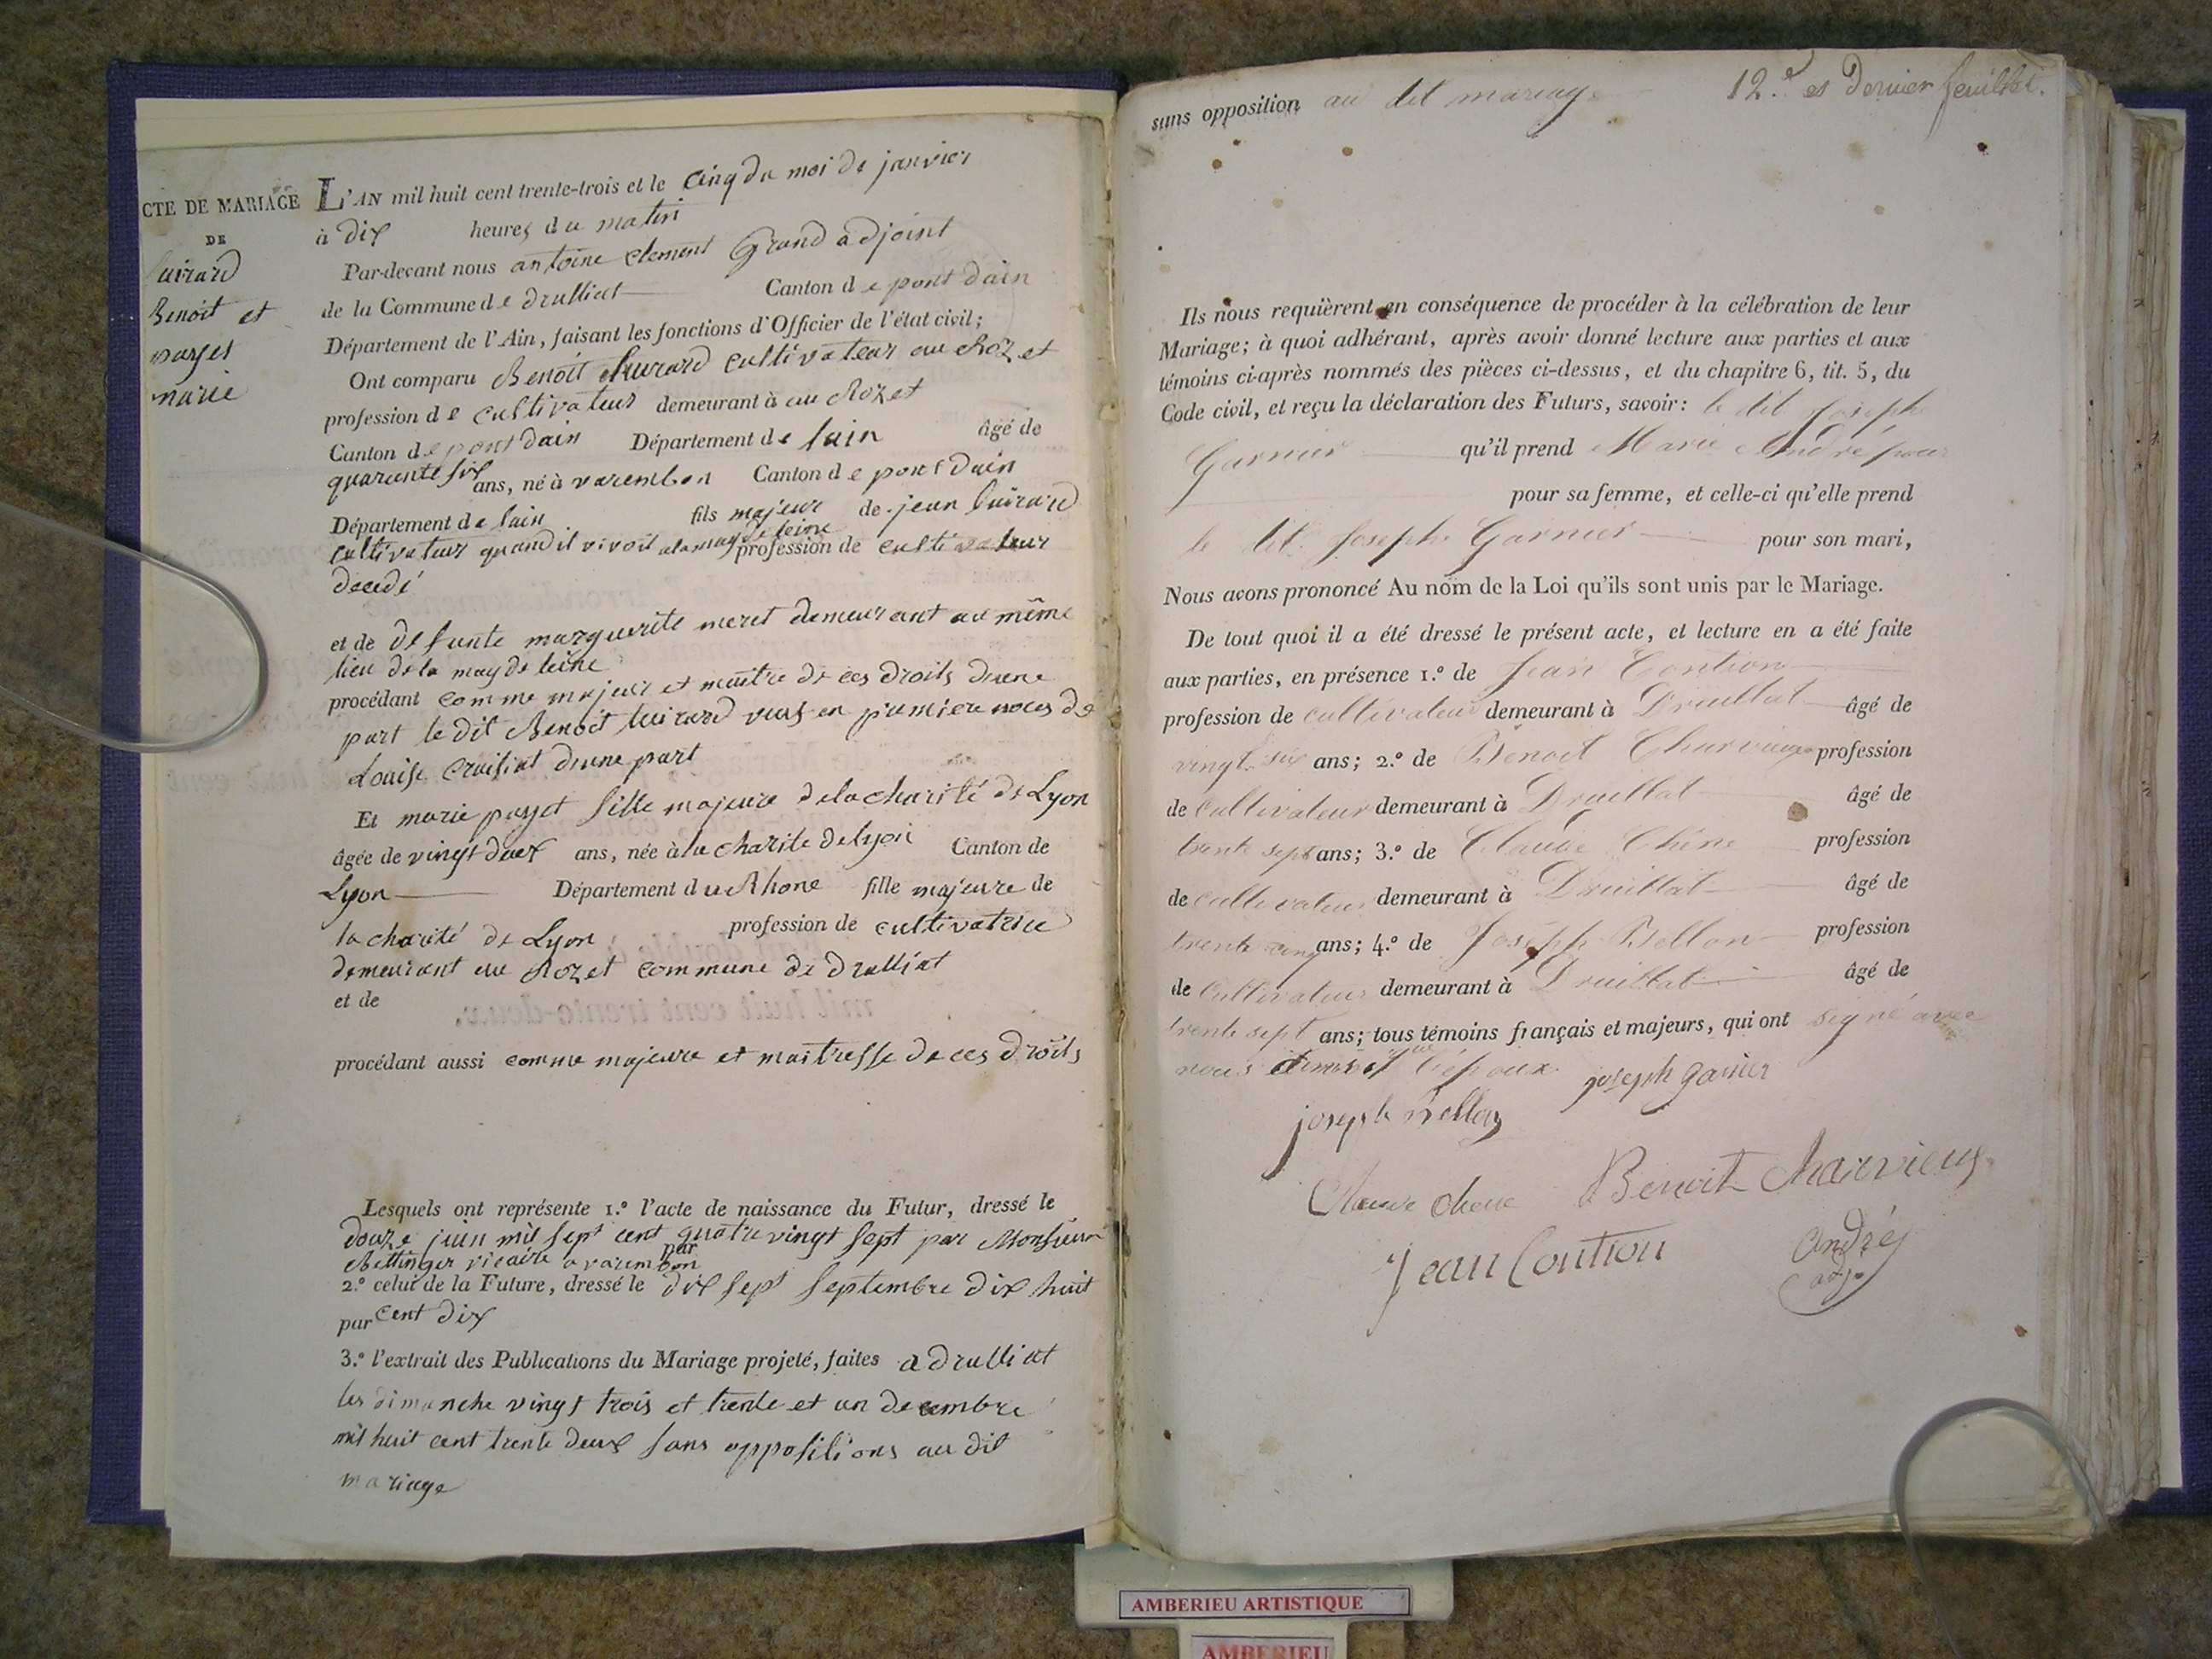 CTE DE MARIAGE
DE
Benoit et
marie
L'AN mil huit cent trente-trois et le cinq du moi de janvier
à dix heures du matin
Par-devant nous antoine clement Grand adjoint
de la Commune de drulliat Canton de pont dain
Département de l'Ain, faisant les fonctions d'Officier de l'état civil;
Ont comparu Benoit cultivateur au Rozet
profession de cultivateur demeurant à au Rozet
Canton de pont dain Département de lain âgé de
quarante six ans, né à varembon Canton de pont dain
Département de lain fils majeur de jean
cultivateur quand il vivoit profession de cultivateur
decedé
et de defunte marguerite meret demeurant au même
lieu de la
procédant comme majeur et maitre de ces droits dune
part le dit Benoit en premiere noces de
Louise dune part
Et marie fille majeure de la charité de Lyon
âgée de vingt deux ans, née à la charite de lyon Canton de
Lyon Département du Rhone fille majeure de
la charité de Lyon profession de cultivatrice
demeurant au Rozet commune de drulliat
et de
procédant aussi comme majeure et maitresse de ces droits
Lesquels ont représente 1.º l'acte de naissance du Futur, dressé le
douze juin mil sept cent quatre vingt sept par Monsieur
vicaire a varembon
par
2.º celui de la Future, dressé le dix sept septembre dix huit
par cent dix
3.º l'extrait des Publications du Mariage projeté, faites a drulliat
les dimanche vingt trois et trente et un decembre
mil huit cent trente deux sans oppositions au dit
mariage
12.e et Dernier feuillet.
sans opposition au dit mariage
Ils nous requièrent en conséquence de procéder à la célébration de leur
Mariage; à quoi adhérant, après avoir donné lecture aux parties et aux
témoins ci-après nommés des pièces ci-dessus, et du chapitre 6, tit. 5, du
Code civil, et reçu la déclaration des Futurs, savoir: le dit Joseph
Garnier qu'il prend Marie André pour
pour sa femme, et celle-ci qu'elle prend
le dit Joseph Garnier pour son mari,
Nous avons prononcé Au nom de la Loi qu'ils sont unis par le Mariage.
De tout quoi il a été dressé le présent acte, et lecture en a été faite
aux parties, en présence 1.º de Jean Contion
profession de cultivateur demeurant à Druillat âgé de
vingt six ans; 2.º de Benoit Charvieux profession
de cultivateur demeurant à Druillat âgé de
trente sept ans; 3.º de Claude Chêne profession
de cultivateur demeurant à Druillat âgé de
trente cinq ans; 4.º de Joseph Bellon profession
de cultivateur demeurant à Druillat âgé de
trente sept ans; tous témoins français et majeurs, qui ont signé avec
nous l'époux
joseph garnier
joseph Bellon
Claude chene Benoit charvieux
Jean Contion andré
adj.
AMBERIEU ARTISTIQUE
AMBERIEU